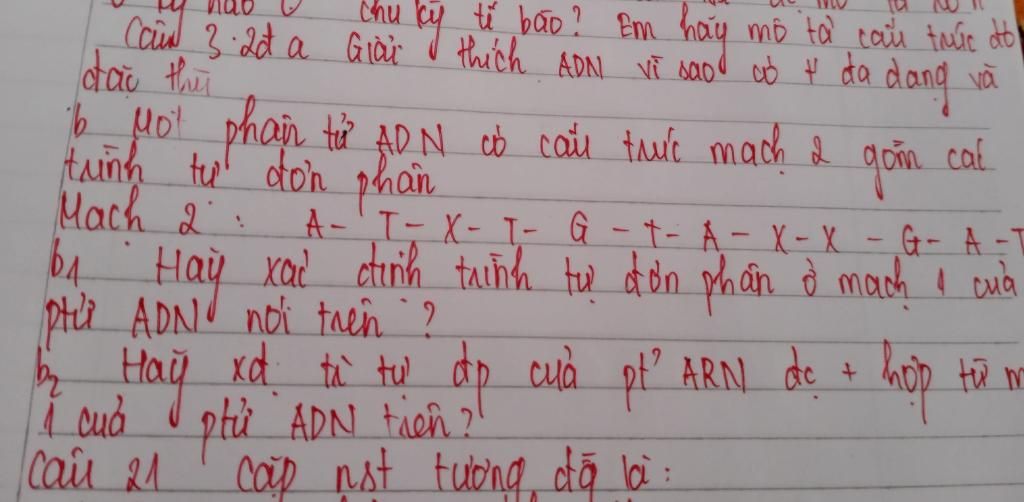 chu kỳ tế bào? Em hãy mô tả cấu trúc đó
Câu 3. 2đ a Giải thích ADN vì sao có t đa dạng và
đặc thù
b Một phân tử ADN có cấu trúc mạch 2 gồm các
trình tự đơn phân
Mạch 2: A - T - X - T - G - T - A - X - X - G - A - T
b1 Hãy xác định trình tự đơn phân ở mạch 1 của
ptử ADN nói trên?
b2 Hãy xđ tì tự đp của pt' ARN đc + hợp từ m
1 của ptử ADN trên?
Câu 21 Cặp nst tương đg là: